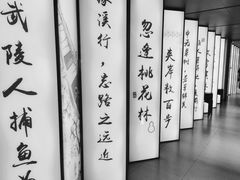 武陵人捕鱼为
缘溪行，忘路之远近
忽逢桃花林
夹岸数百步
中无杂树，芳草鲜美